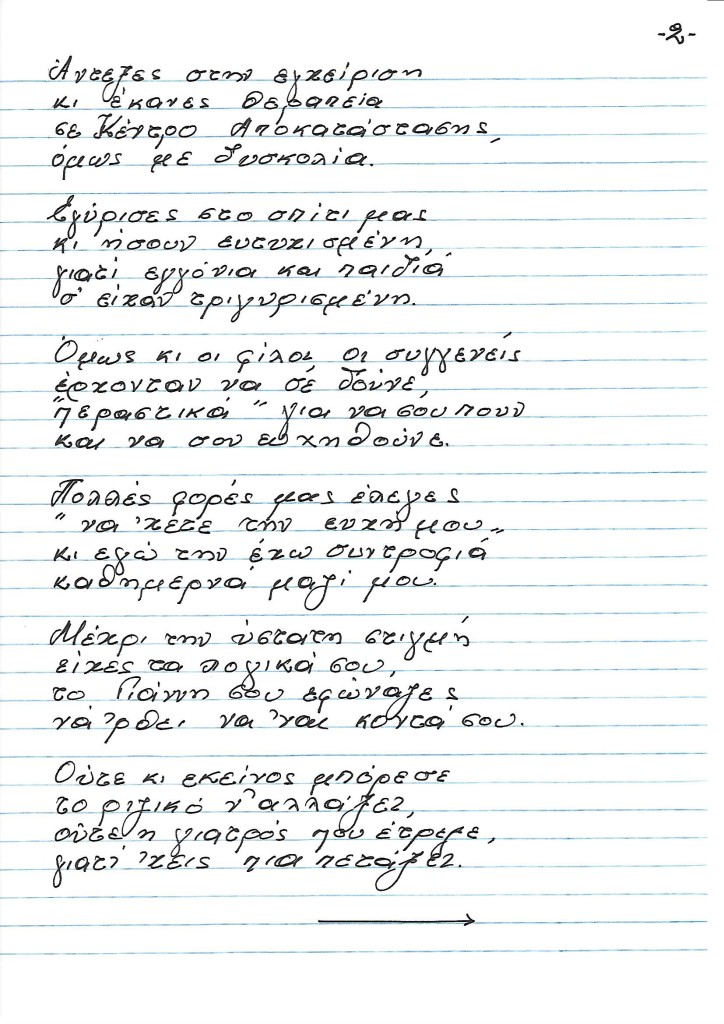 -2-
Άντεξες στην εγχείριση
κι έκανες θεραπεία
σε Κέντρο Αποκατάστασης,
όμως με δυσκολία.
Εγύρισες στο σπίτι μας
κι ήσουν ευτυχισμένη,
γιατί εγγόνια και παιδιά
σ' είχαν τριγυρισμένη.
Όμως κι οι φίλοι οι συγγενείς
έρχονταν να σέ δούνε,
"περαστικά" για να σου πουν
και να σου ευχηθούνε.
Πολλές φορές μας έλεγες
"να 'χετε την ευχή μου"
κι εγώ την έχω συντροφιά
καθημερνά μαζί μου.
Μέχρι την ύστατη στιγμή
είχες τα λογικά σου,
το Γιάννη σου εφώναζες
νά 'ρθει να 'ναι κοντά σου.
Ούτε κι εκείνος μπόρεσε
το ριζικό ν' αλλάξει,
ούτε η γιατρός που έτρεξε,
γιατί 'χεις πια πετάξει.